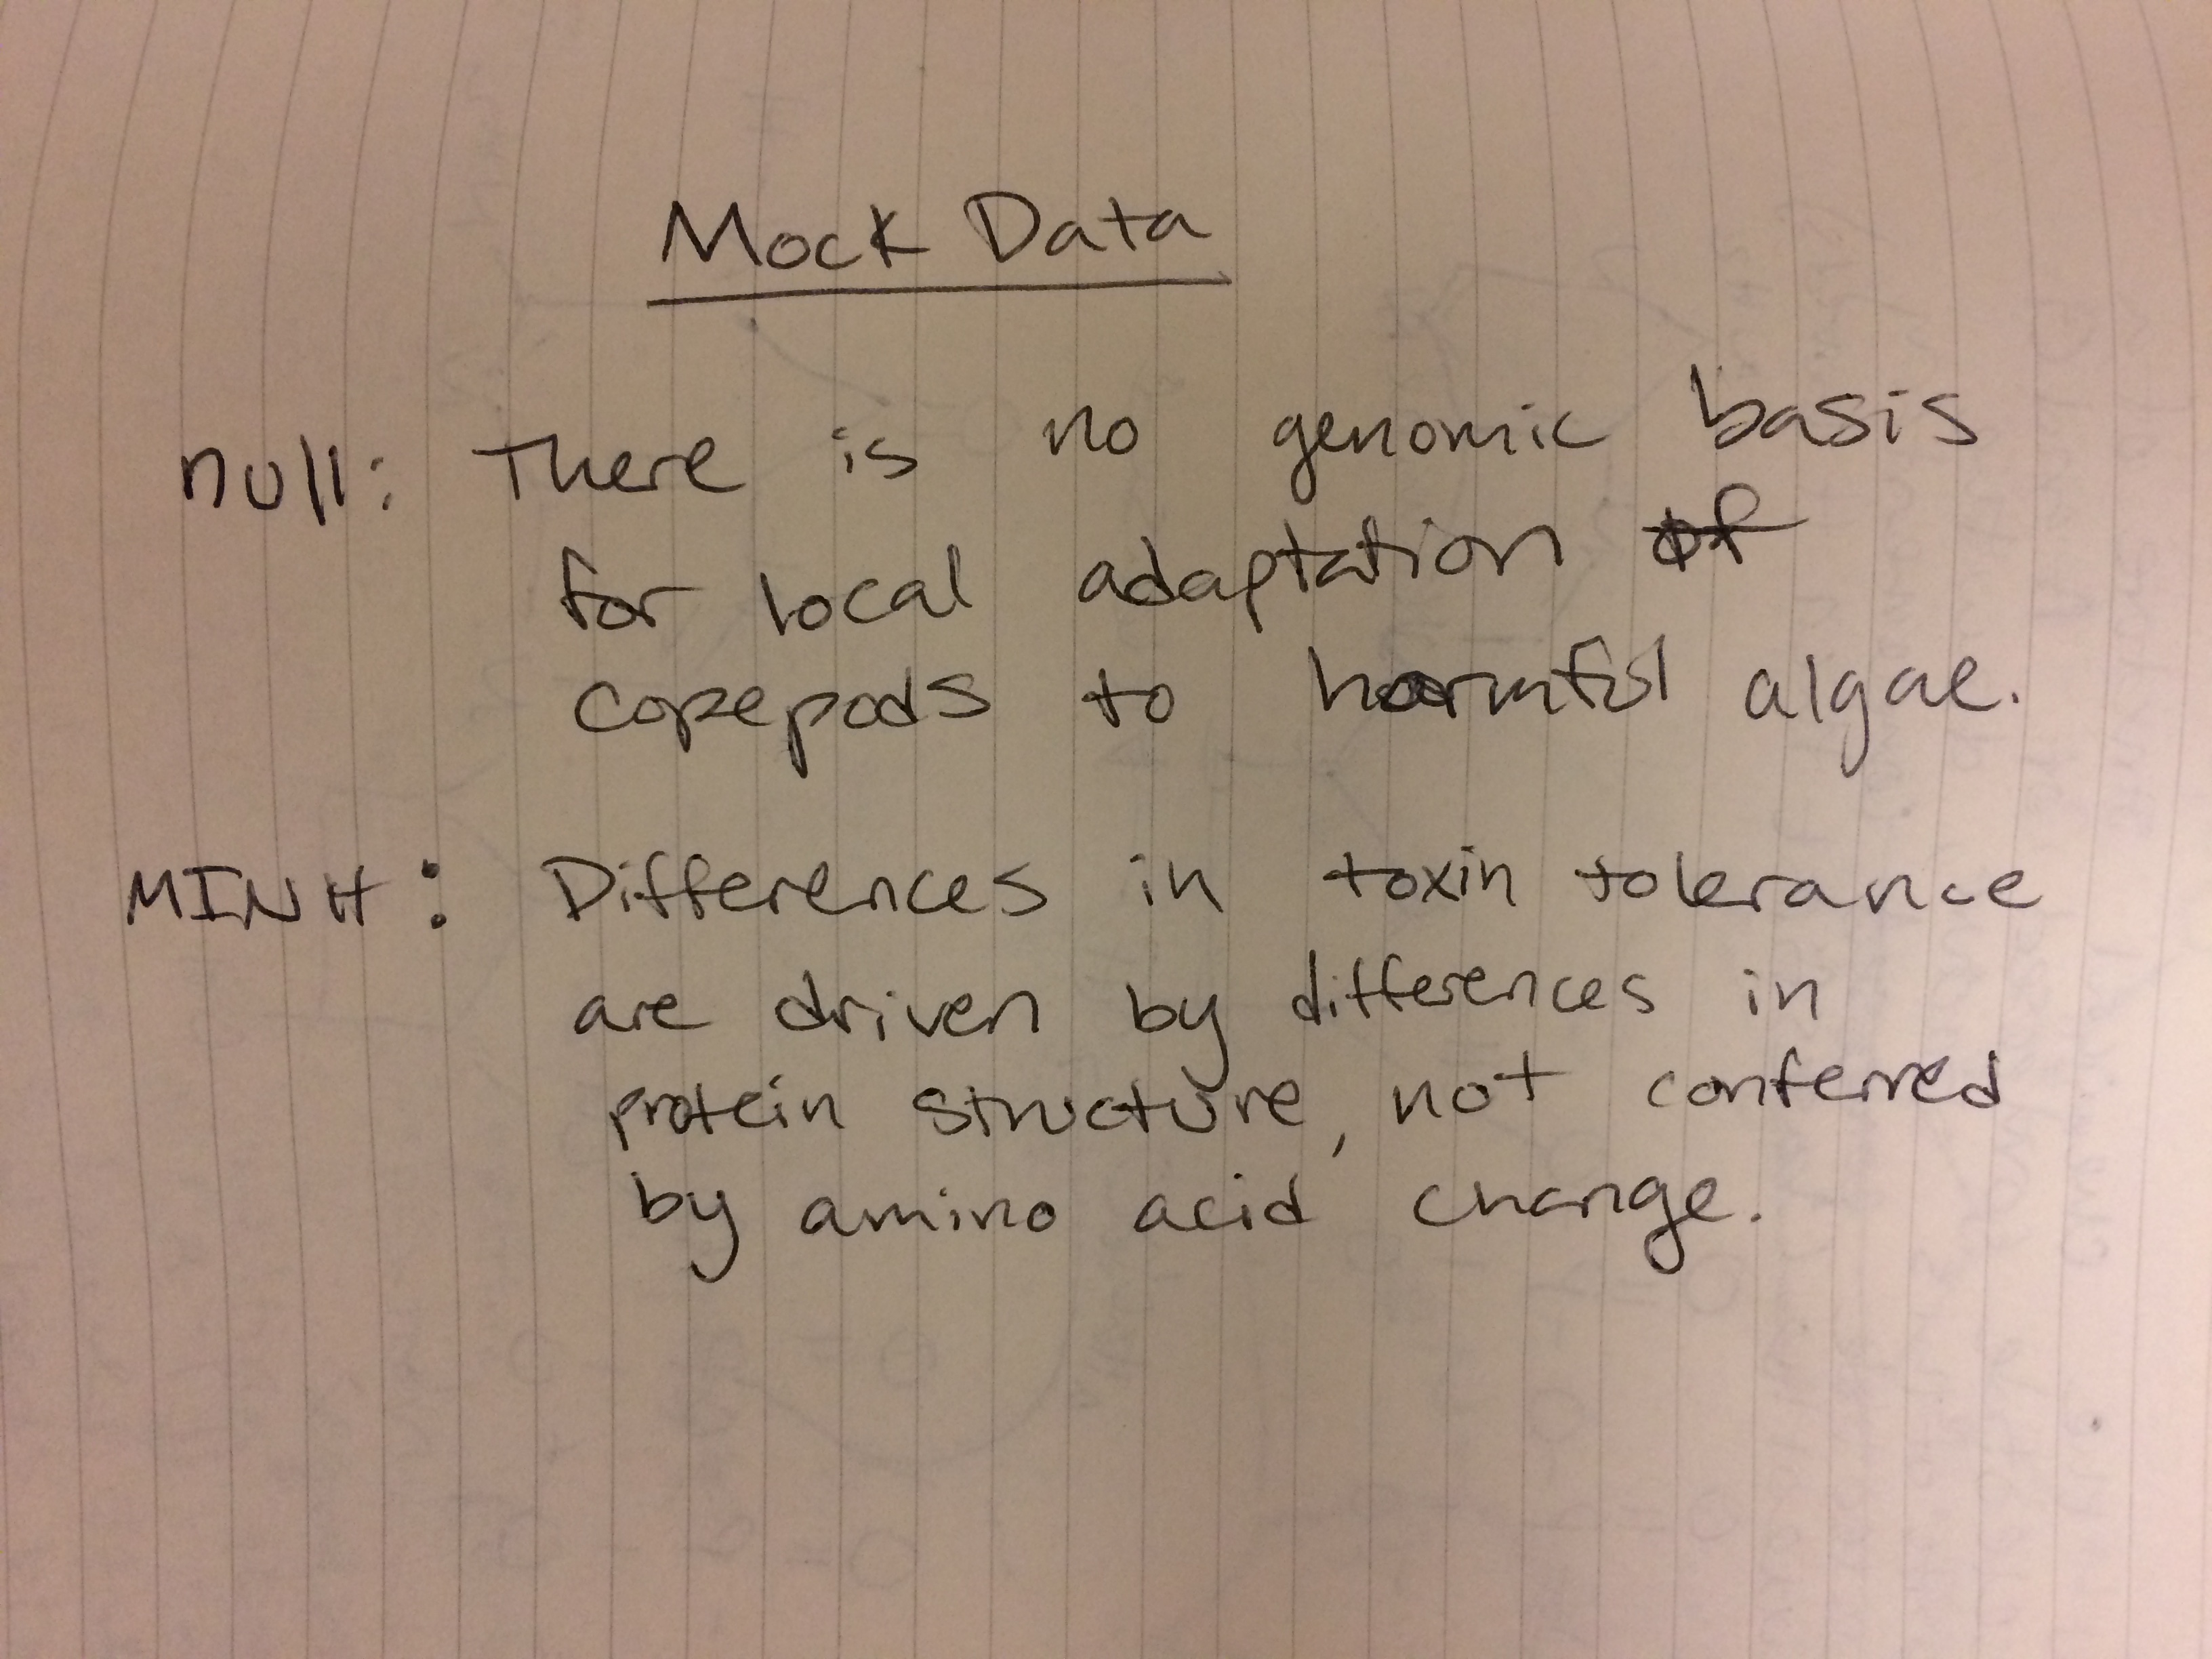 Mock Data
null: There is no genomic basis
for local adaptation of
copepods to harmful algae.
MINH: Differences in toxin tolerance
are driven by differences in
protein structure, not conferred
by amino acid change.